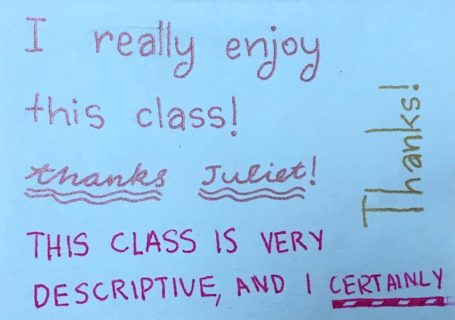 I really enjoy
this class!
thanks Juliet!
Thanks!
THIS CLASS IS VERY
DESCRIPTIVE, AND I CERTAINLY